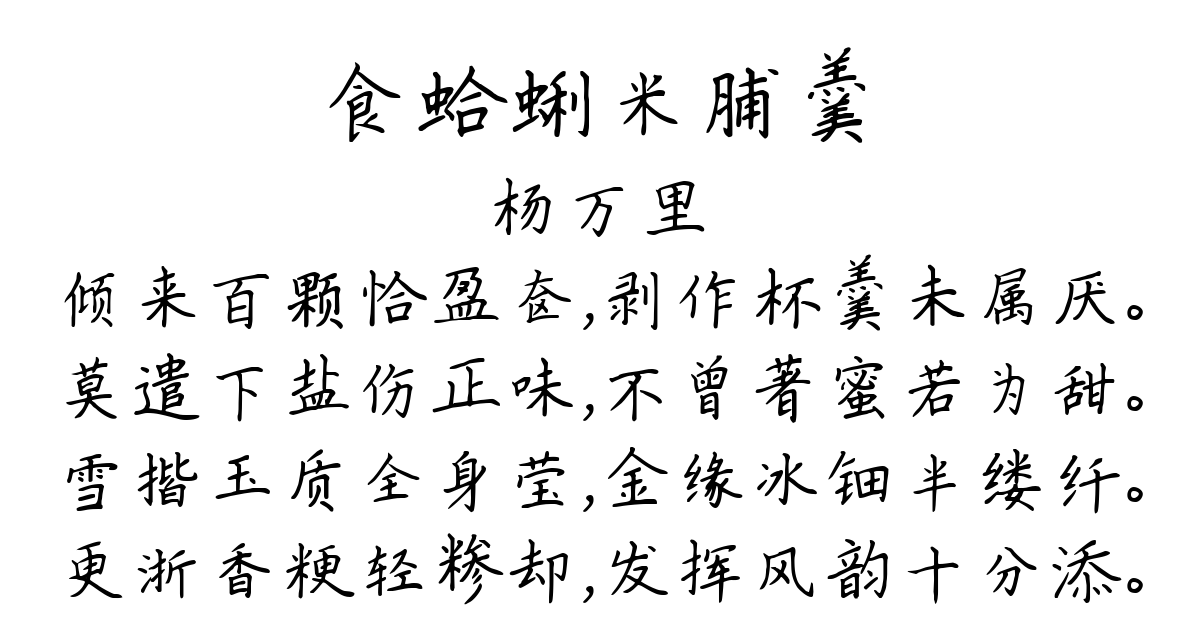 食蛤蜊米脯羹
杨万里
倾来百颗恰盈奁,剥作杯羹未属厌。
莫遣下盐伤正味,不曾著蜜若为甜。
雪揩玉质全身莹,金缘冰钿半缕纤。
更浙香粳轻糁却,发挥风韵十分添。